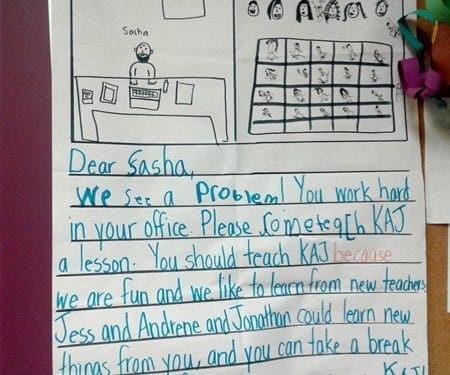 Sasha
Dear Sasha,
We see a Problem! You work hard
in your office. Please come teach KAJ
a lesson. You should teach KAJ because
we are fun and we like to learn from new teachers.
Jess and Andrene and Jonathan could learn new
things from you, and you can take a break
KAJ!